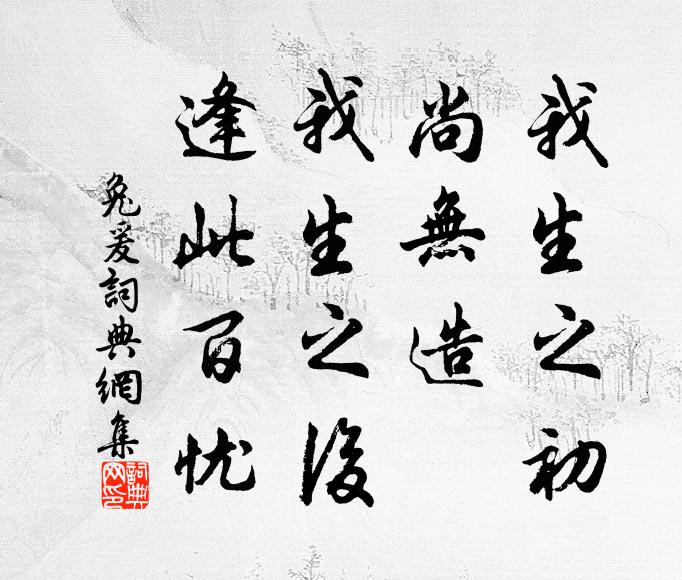 我生之初
尚無造
我生之後
逢此百忧
兔爰詞典網集
詞典網印